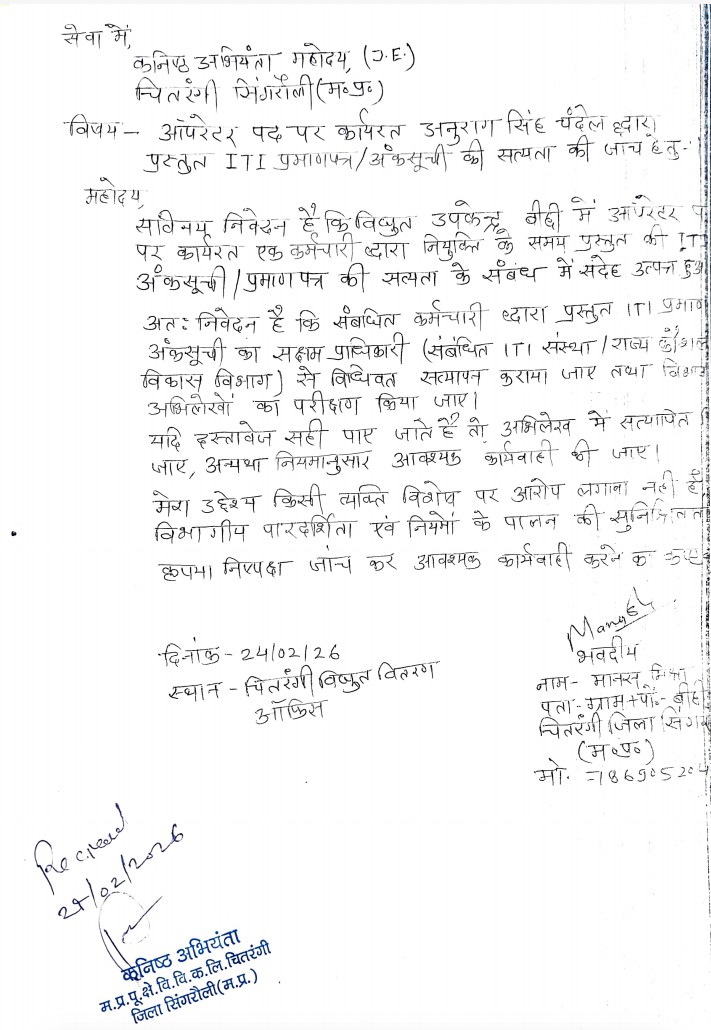 सेवा में,
कनिष्ठ अभियंता महोदय, (J.E.)
चितरंगी सिंगरौली (म॰प्र॰)
विषय - ऑपरेटर पद पर कार्यरत अनुराग सिंह चंदेल द्वारा
प्रस्तुत ITI प्रमाणपत्र/अंकसूची की सत्यता की जांच हेतु-
महोदय,
सविनय निवेदन है कि विद्युत उपकेन्द्र बीछी में ऑपरेटर
पर कार्यरत एक कर्मचारी द्वारा नियुक्ति के समय प्रस्तुत की ITI
अंकसूची/प्रमाणपत्र की सत्यता के संबंध में संदेह उत्पन्न
अतः निवेदन है कि संबंधित कर्मचारी द्वारा प्रस्तुत ITI
अंकसूची का सक्षम प्राधिकारी (संबंधित ITI संस्था/राज्य
विकास विभाग) से विधिवत सत्यापन कराया जाए तथा
अभिलेखों का परीक्षण किया जाए।
यदि दस्तावेज सही पाए जाते है तो अभिलेख में सत्यापित
जाए, अन्यथा नियमानुसार आवश्यक कार्यवाही की जाए।
मेरा उद्देश्य किसी व्यक्ति विशेष पर आरोप लगाना नहीं है
विभागीय पारदर्शिता एवं नियमों के पालन की
कृपया निष्पक्ष जांच कर आवश्यक कार्यवाही करने
दिनांक - 24/02/26
स्थान - चितरंगी विद्युत वितरण
ऑफिस
भवदीय
नाम- मानस
पता- ग्राम+पो॰-
चितरंगी जिला
(म॰प्र॰)
मो॰
Received
24/02/2026
कनिष्ठ अभियंता
म.प्र.पू.क्षे.वि.वि.क.लि.चितरंगी
जिला सिंगरौली (म.प्र.)